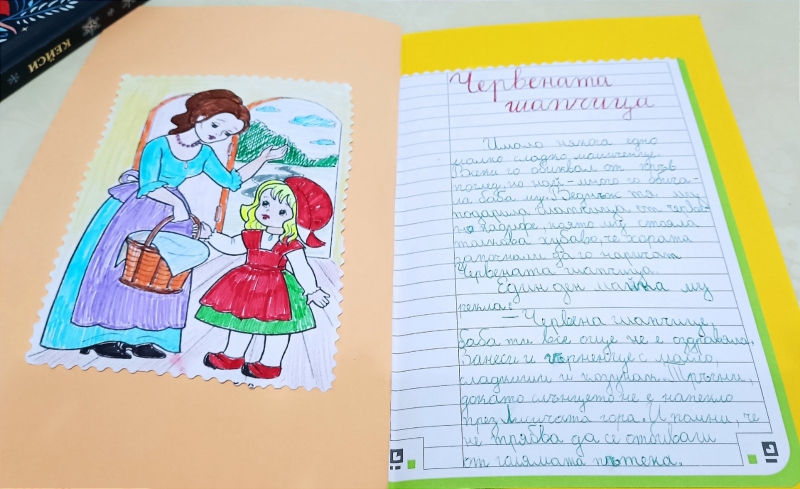 КЕЙСИ
Червената
шапчица
Имало някога едно
малко сладко момиченце.
Всеки го обиквал от пръв
поглед, но най-много го обича-
ла баба му. Веднъж тя му
подарила шапчица от червен-
о кадифе, която му стояла
толкова хубаво, че хората
започнали да го наричат
Червената шапчица.
Един ден майка му
рекла:
— Червена шапчице,
баба ти все още не е оздравяла.
Занеси и гърненце с масло,
сладкиши и козунак. Тръгни,
докато слънцето не е напекло
през Лисичата гора. И помни, че
не трябва да се отбиваш
от голямата пътека.